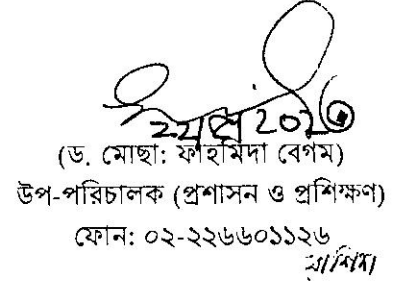 (ড. মোছা: ফাহমিদা বেগম)
উপ-পরিচালক (প্রশাসন ও প্রশিক্ষণ)
ফোন: ০২-২২৬৬০১১২৬